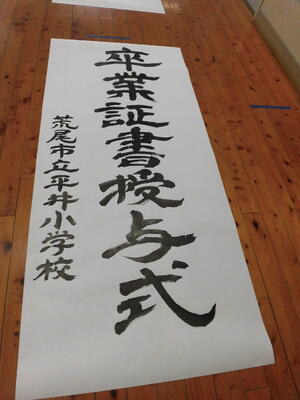 卒業証書授与式
荒尾市立平井小学校